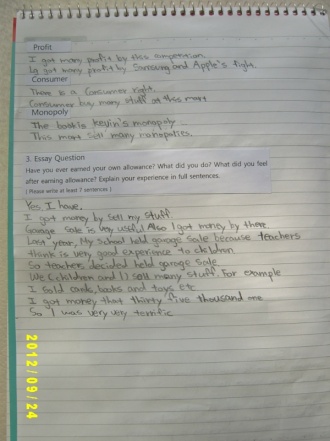 Profit
I got many profit by this competition
Lg got many profit by Samsung and Apple's fight.
Consumer
There is a Consumer right.
Consumer buy many stuff at this mart
Monopoly
The book is kevin's monopoly
This mart sell many monopolies.
3. Essay Question
Have you ever earned your own allowance? What did you do? What did you feel
after earning allowance? Explain your experience in full sentences.
( Please write at least 7 sentences )
Yes I have.
I got money by sell my stuff
Garage sale is very useful Also I got money by there
Last year, My school held garage sale because teachers
think is very good experience to children
So teachers decided held garage sale
We (Children and I) sold many stuff. For example
I sold cards, books and toys etc
I got money that thirty five thousand one
So I was very very terrific
2012/09/24